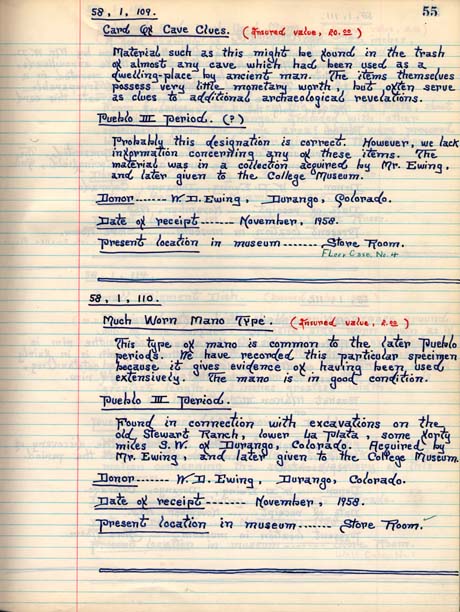 55
58, 1, 109.
Card of Cave Clues. (Insured value, 20.00)
Material such as this might be found in the trash
of almost any cave which had been used as a
dwelling-place by ancient man. The items themselves
possess very little monetary worth, but often serve
as clues to additional archaeological revelations.
Pueblo III Period. (?)
Probably this designation is correct. However, we lack
information concerning any of these items. The
material was in a collection acquired by Mr. Ewing,
and later given to the College Museum.
Donor------- W. D. Ewing, Durango, Colorado.
Date of receipt------- November, 1958.
Present location in museum------- Store Room.
Floor Case, No. 4
58, 1, 110.
Much Worn Mano Type. (Insured value, 2.00)
This type of mano is common to the later Pueblo
periods. We have recorded this particular specimen
because it gives evidence of having been used
extensively. The mano is in good condition.
Pueblo III Period.
Found in connection with excavations on the
old Stewart Ranch, lower La Plata, some forty
miles S.W. of Durango, Colorado. Acquired by
Mr. Ewing, and later given to the College Museum.
Donor------- W. D. Ewing, Durango, Colorado.
Date of receipt------- November, 1958.
Present location in museum------- Store Room.